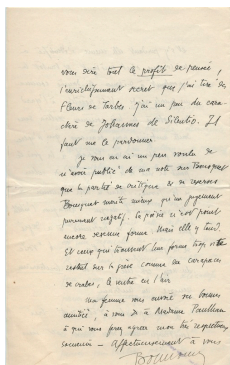 vous dire tout le profit de pensée,
l'enrichissement secret que j'ai tiré des
Fleurs de Tarbes. J'ai un peu du cara-
ctère de Johannes de Silentio. Il
faut me le pardonner.
Je vous ai un peu voulu de
n'avoir publié de ma note sur Bousquet
que la partie de critique et de réserves
Bousquet mérite mieux qu'un jugement
purement négatif. Sa poésie n'est point
encore devenue forme mais elle y tend.
Et ceux qui trouvent leur forme trop vite
restent sur la grève comme des carapaces
de crabes, le ventre en l'air
Ma femme vous envoie ses bonnes
amitiés, à vous et à Madame Paulhan
à qui vous ferez agréer mon très respectueux
souvenir — Affectueusement à vous